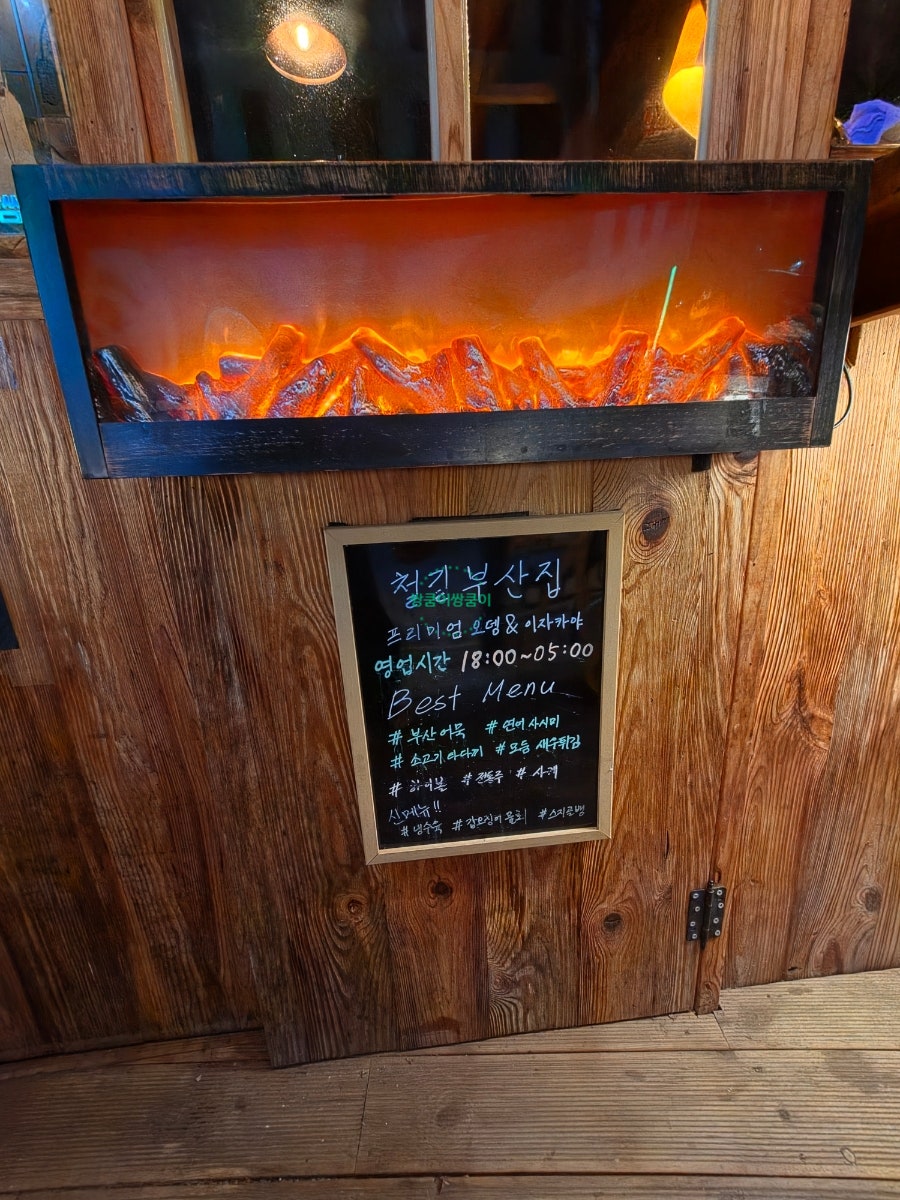 철길부산집
쌍쿵이쌍쿵이
프리미엄 오뎅 & 이자카야
영업시간 18:00~05:00
Best Menu
# 부산어묵 # 연어 사시미
# 소고기 타다끼 # 모듬 새우튀김
# 하이볼 # 전통주 # 사케
신메뉴!!
# 냉수육 # 갑오징어 물회 # 스지곰탕